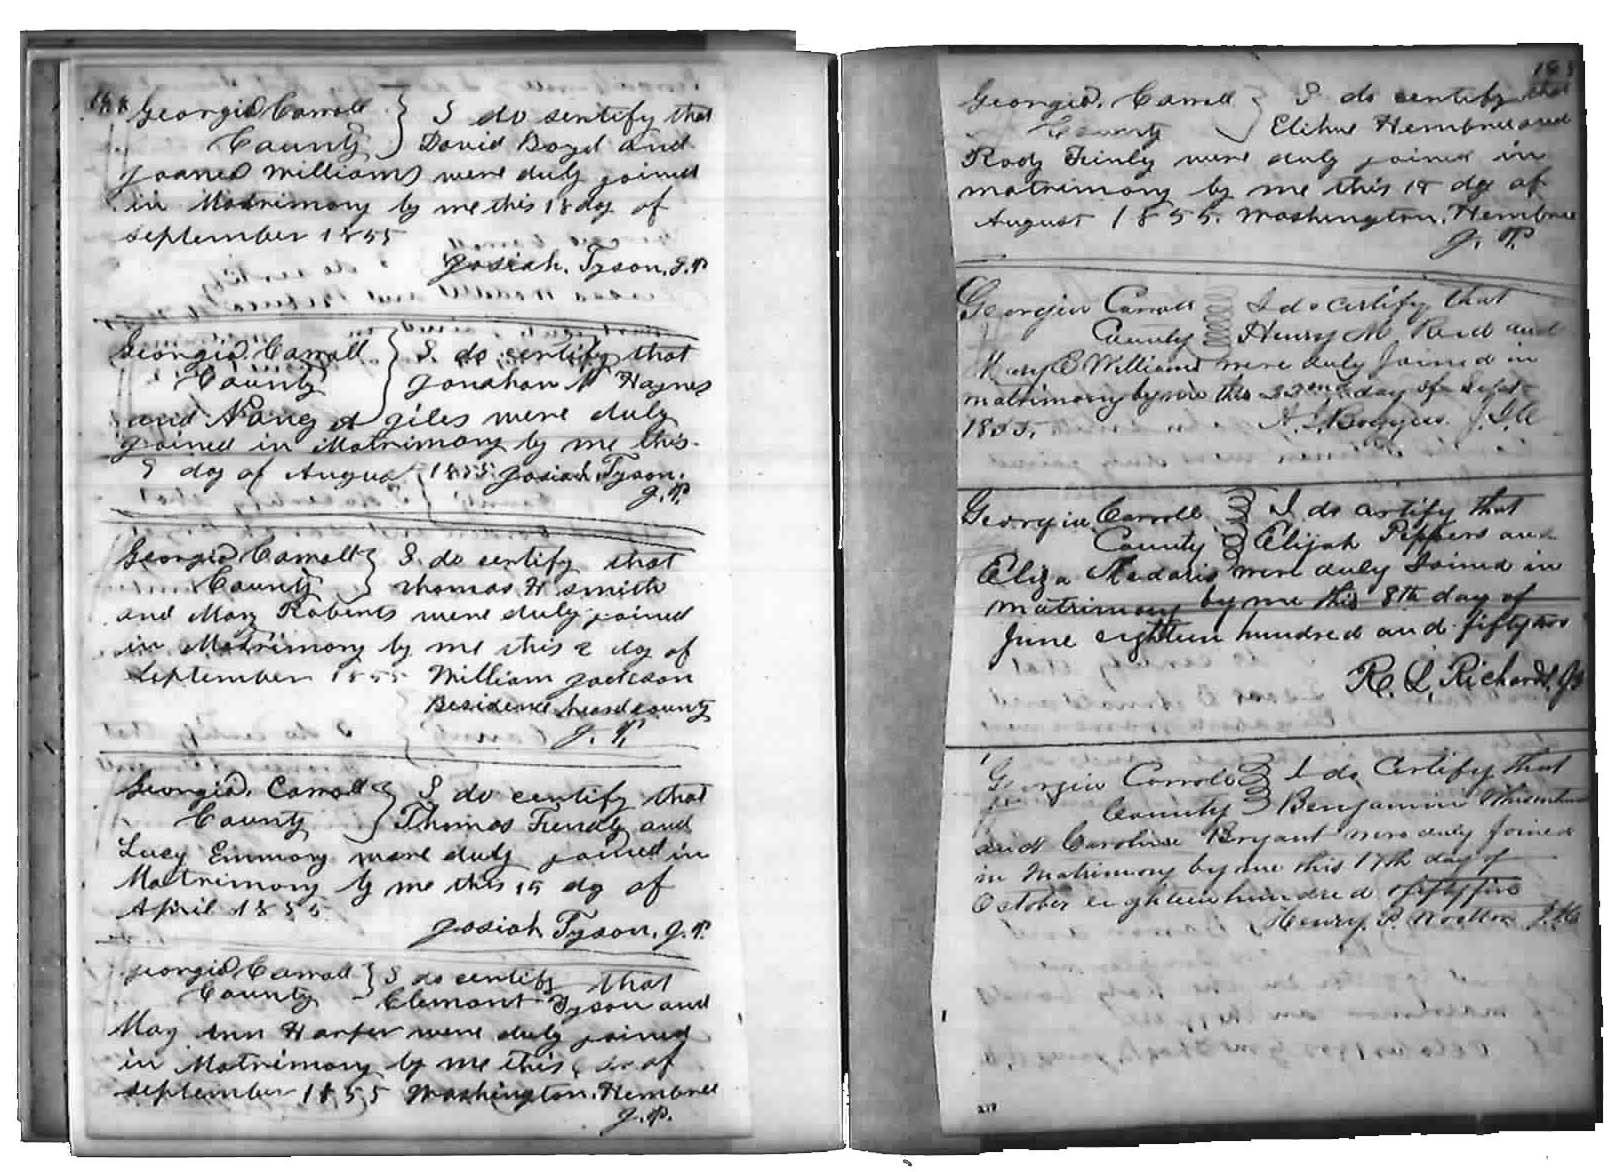 188
Georgia Carroll } I do sertify that
County } David Boyd and
Joanes Williams were duly joined
in Matrimony by me this 18 dy of
September 1855
Josiah. Tyson. J.P.
Georgia. Carroll } I do certify that
County } Jonahan M Haynes
and Nancy A Giles were duly
joined in Matrimony by me this
9 day of Augus 1855 Josiah Tyson.
J.P.
Georgia Carroll } I do certify that
County } Thomas H Smith
and Mary Roberts were duly joined
in Matrimony by me this 2 dy of
September 1855 William Jackson
Residence heard county
J. P.
Georgia. Carroll } I do certify that
County } Thomas and
Lucy Emmory were duly joined in
Matrimony by me this 15 dy of
April 1855
Josiah Tyson. J.P.
Georgia Carroll } I do certify that
County Clemont Tyson and
May Ann Harper were duly joined
in Matrimony by me this of
September 1855 Washington. Hembree
J.P.
Georgia. Carroll } I do certify that
County } Elihue Hembree and
Rody Finly were duly joined in
matrimony by me this 18 dy of
August 1855. Washington. Hembree
J. P.
Georgia Carroll } I do certify that
County } Henry M Reid and
Mary E Williams were duly Joined in
matrimony by me this 22nd day of Sept
1855. J.I.C
Georgia Carroll } I do certify that
County } Elijah Peppers and
Eliza Medaris were duly Joined in
matrimony by me this 8th day of
June eighteen hundred and fifty two
R. L. Richards, JP
Georgia Carroll } I do Certify that
County } Benjamin
and Caroline Bryant were duly Joined
in Matrimony by me this 17th day of
October eighteen hundred fifty five
Henry P. Wootton J.I.C
217